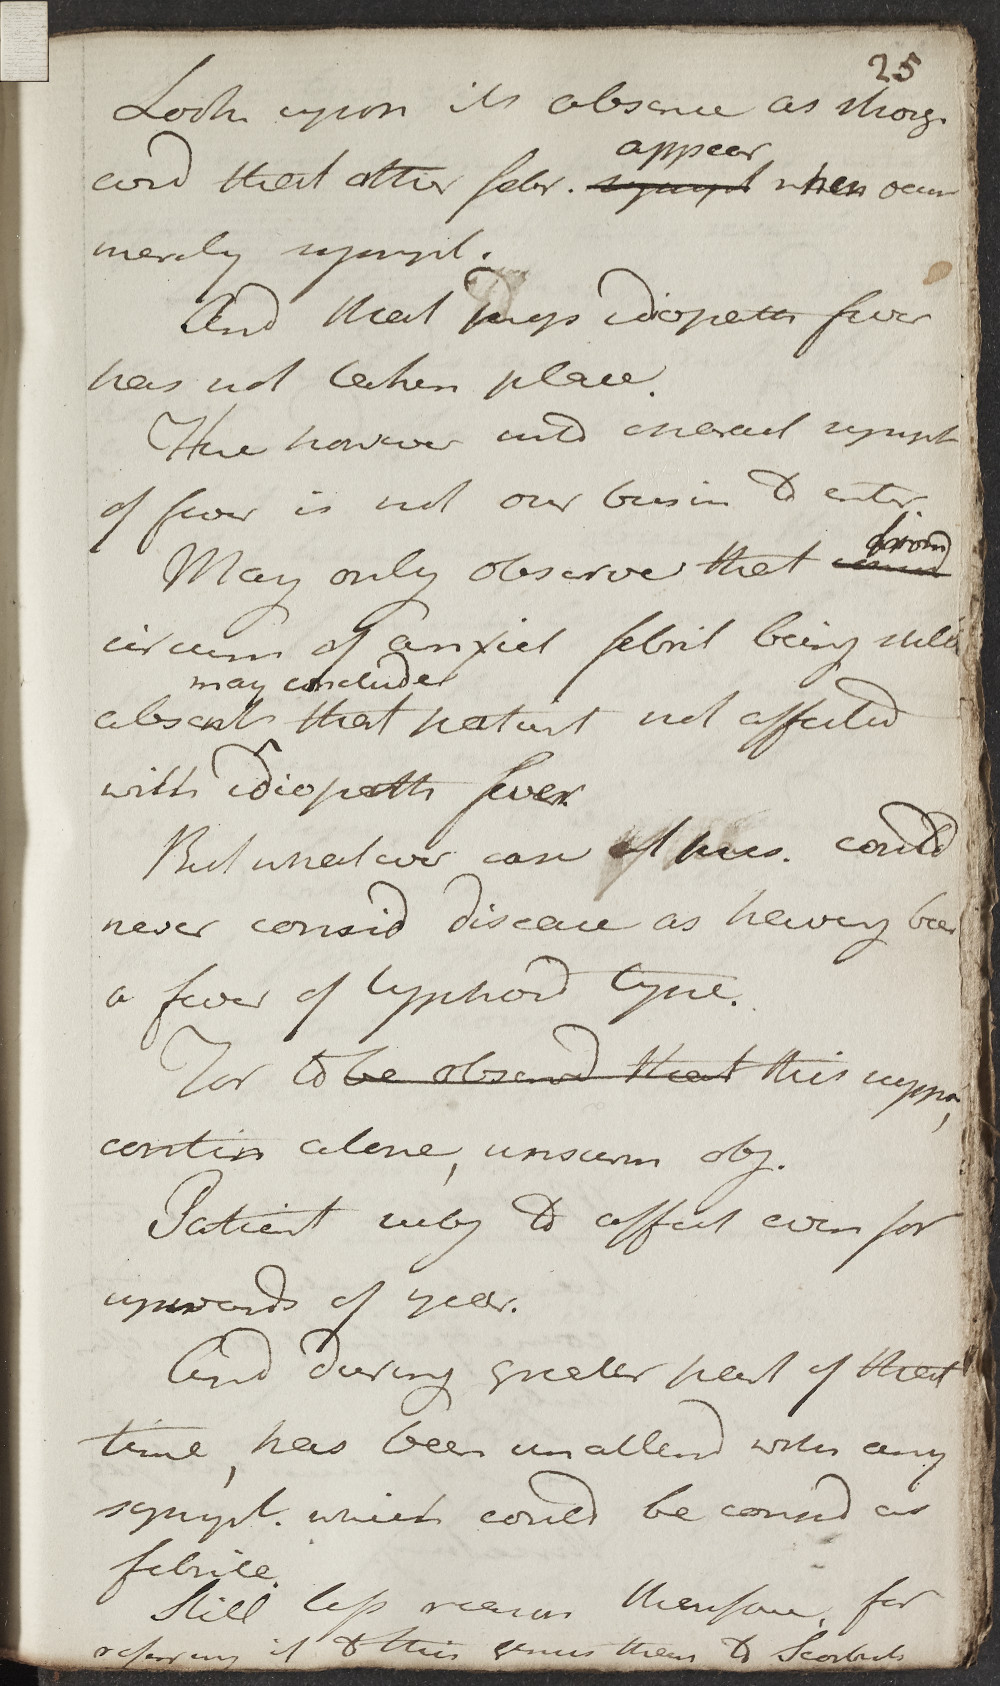 25
Look upon its absence as strong
evid that other febr. appear sympt when occur
merely sympt.
And that idiopath fever
has not taken place.
Here however into exact sympt
of fever is not our busin to enter.
May only observe that from
circum of anxiet febril being
may conclude
absent that patient not affected
with idiopath fever.
But whatever case could
never consid disease as having been
a fever of typhoid type.
For to be observd that this
contin alone, obj.
Patient subj to affect even for
upwards of year.
And during greater part of that
time, has been unattend with any
sympt. which could be consid as
febrile.
Still less reason therefore, for
referring it to this genus than to Scorbut